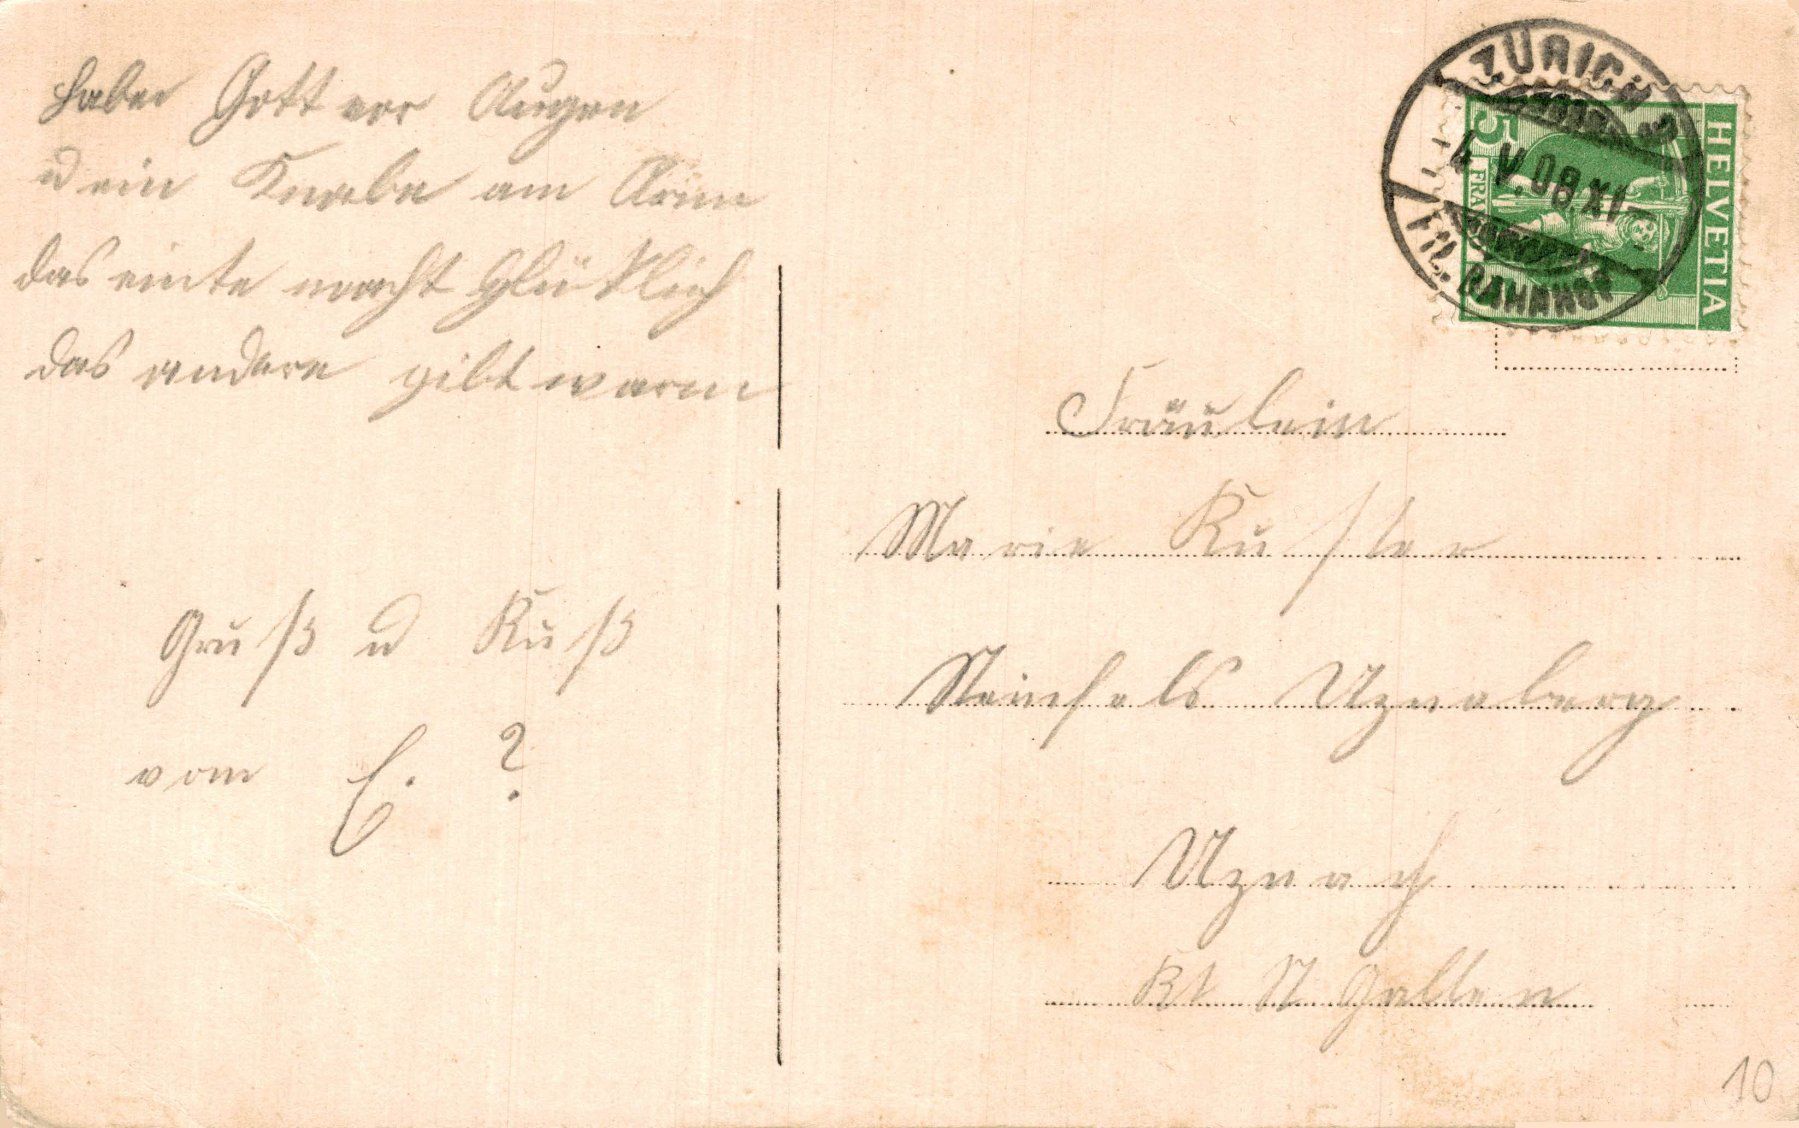 habe Gott vor Augen
u ein Knabe am Arm
das einte macht Glücklich
das andere gibt warm
Gruß u Kuß
vom E. ?
ZÜRICH
4.V.08.XI
FIL. BAHNHOF
5
FRA
HELVETIA
Fräulein
Marie Kuster
Steinfels Uznaberg
Uznach
Kt St Gallen
10